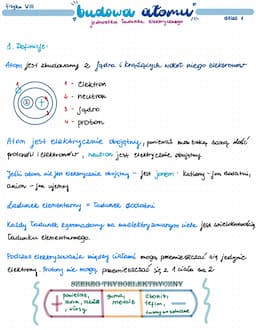 fizyka VIII
budowa atomu
jednostka ładunku elektrycznego
dział 1
1. Definicje:
Atom jest zbudowany z jądra i krążących wokół niego elektronów
1 - elektron
2 - neutron
3 - jądro
4 - proton
Atom jest elektrycznie obojętny, ponieważ ma taką samą ilość
protonów i elektronów, neutron jest elektrycznie obojętny
Jeśli atom nie jest elektrycznie obojętny - jest jonem: kationy - jon dodatni,
anion - jon ujemny
Ładunek elementarny = ładunek dodatni
Każdy ładunek zgromadzony na naelektryzowanym ciele jest wielokrotnością
ładunku elementarnego.
Podczas elektryzowania między ciałami mogą przemieszczać się jedynie
elektrony. Protony nie mogą przemieszczać się z 1 ciała na 2
SZEREG TRYBOELEKTRYCZNY
+
powietrze,
skóra, szkło,
włosy
guma,
metale
ebonit,
teflon,
−